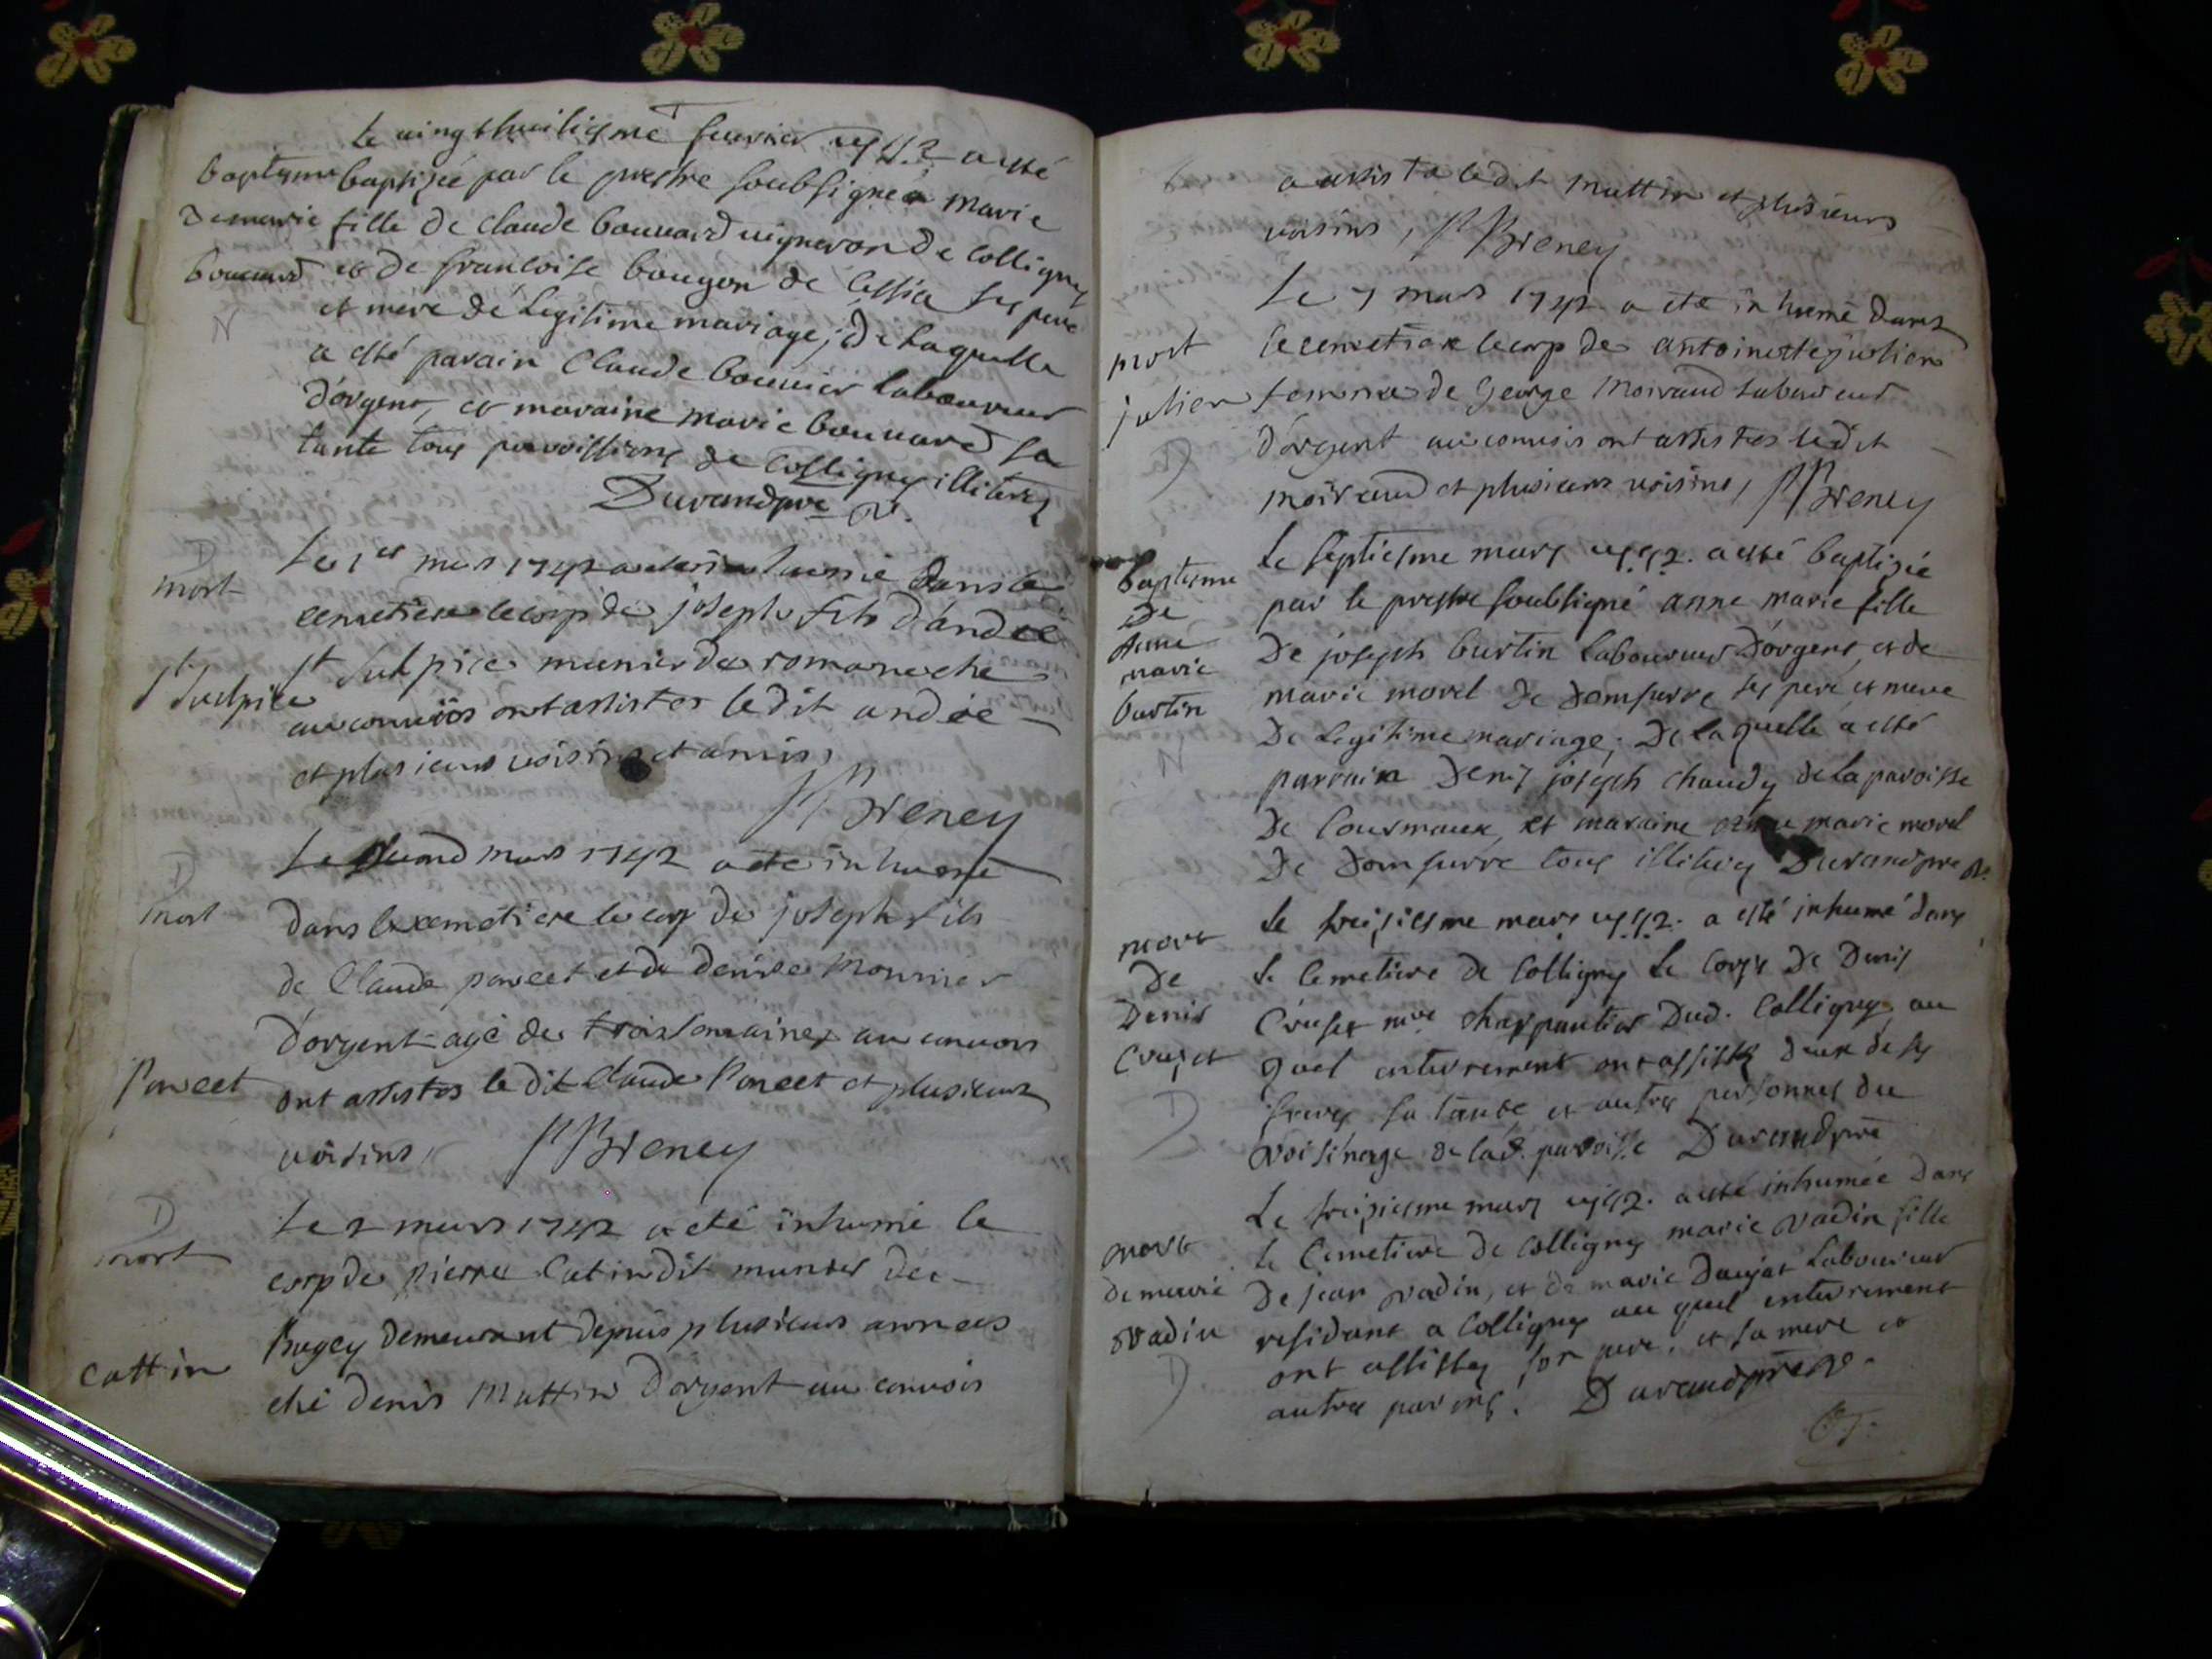 Le vingthuitiesme fevrier 1742 a esté
baptisée par le prestre soubsigné marie
fille de claude bouvard vigneron de colligny
et de francoise bougon de Cessia ses pere
et mere de Legitime mariage; de Laquelle
a esté parain Claude bouvier Laboureur
d'orgent, et maraine marie bouvard sa
tante tous paroissiens de Colligny illiterez
Durandpre
baptesme
de marie
bouvard
N
D
mort
St Sulpice
Le 1er mars 1742 a été inhumé dans le
cemetiere le corp de joseph fils d'andée
St Sulpice munier de romaneche
au convois ont assistes ledit andée
et plusieurs voisins et amis,
Breney
D
mort
Poncet
Le segond mars 1742 a été inhumé
dans le cemetiere le corp de joseph fils
de Claude poncet et de denise Monnier
d'orgent agé de trois semaines au convois
ont assistes ledit Claude Poncet et plusieurs
voisins, Breney
D
mort
Cattin
Le 2 mars 1742 a eté inhumé le
corp de pierre Catin dit munier de
Bugey demeurant depuis plusieurs annees
ché denis Muttin d'orgent au convois
a assiste ledit muttin et plusieurs
voisins, Breney
mort
julien
D
Le 7 mars 1742 a eté inhumé dans
le cemetiere le corp de antoinette julien
femme de george Moiraud Laboureur
d'orgent au convois ont assistes ledit
moiraud et plusieurs voisins, Breney
baptesme
De
Anne
marie
burtin
N
Le septiesme mars 1742. a esté baptizée
par le prestre soubsigné anne marie fille
De joseph burtin Laboureur d'orgent, et de
marie morel de domsurre ses pere et mere
De Legitime mariage; De laquelle a esté
parrain Denis joseph chaudy de la paroisse
De Cousmaux, et maraine marie morel
De Domsurre tous illiterez Durandpre
mort
De
Denis
Cruset
D
Le treisiesme mars 1742. a esté inhumé dans
Le Cemetiere de Colligny Le Corps De Denis
Cruset mre charpantier Dud. Colligny au
quel enterrement ont assisté deux de ses
freres sa tante et autres personnes du
voisinage de lad. paroisse Durandpre
mort
de marie
vadin
D
Le treisiesme mars 1742. a esté inhumée Dans
Le Cemetiere De Colligny marie vadin fille
De jean vadin, et de marie Daujat Laboureur
residant a Colligny au quel enterrement
ont assistez son pere, et sa mere et
autres parens. Durandpre